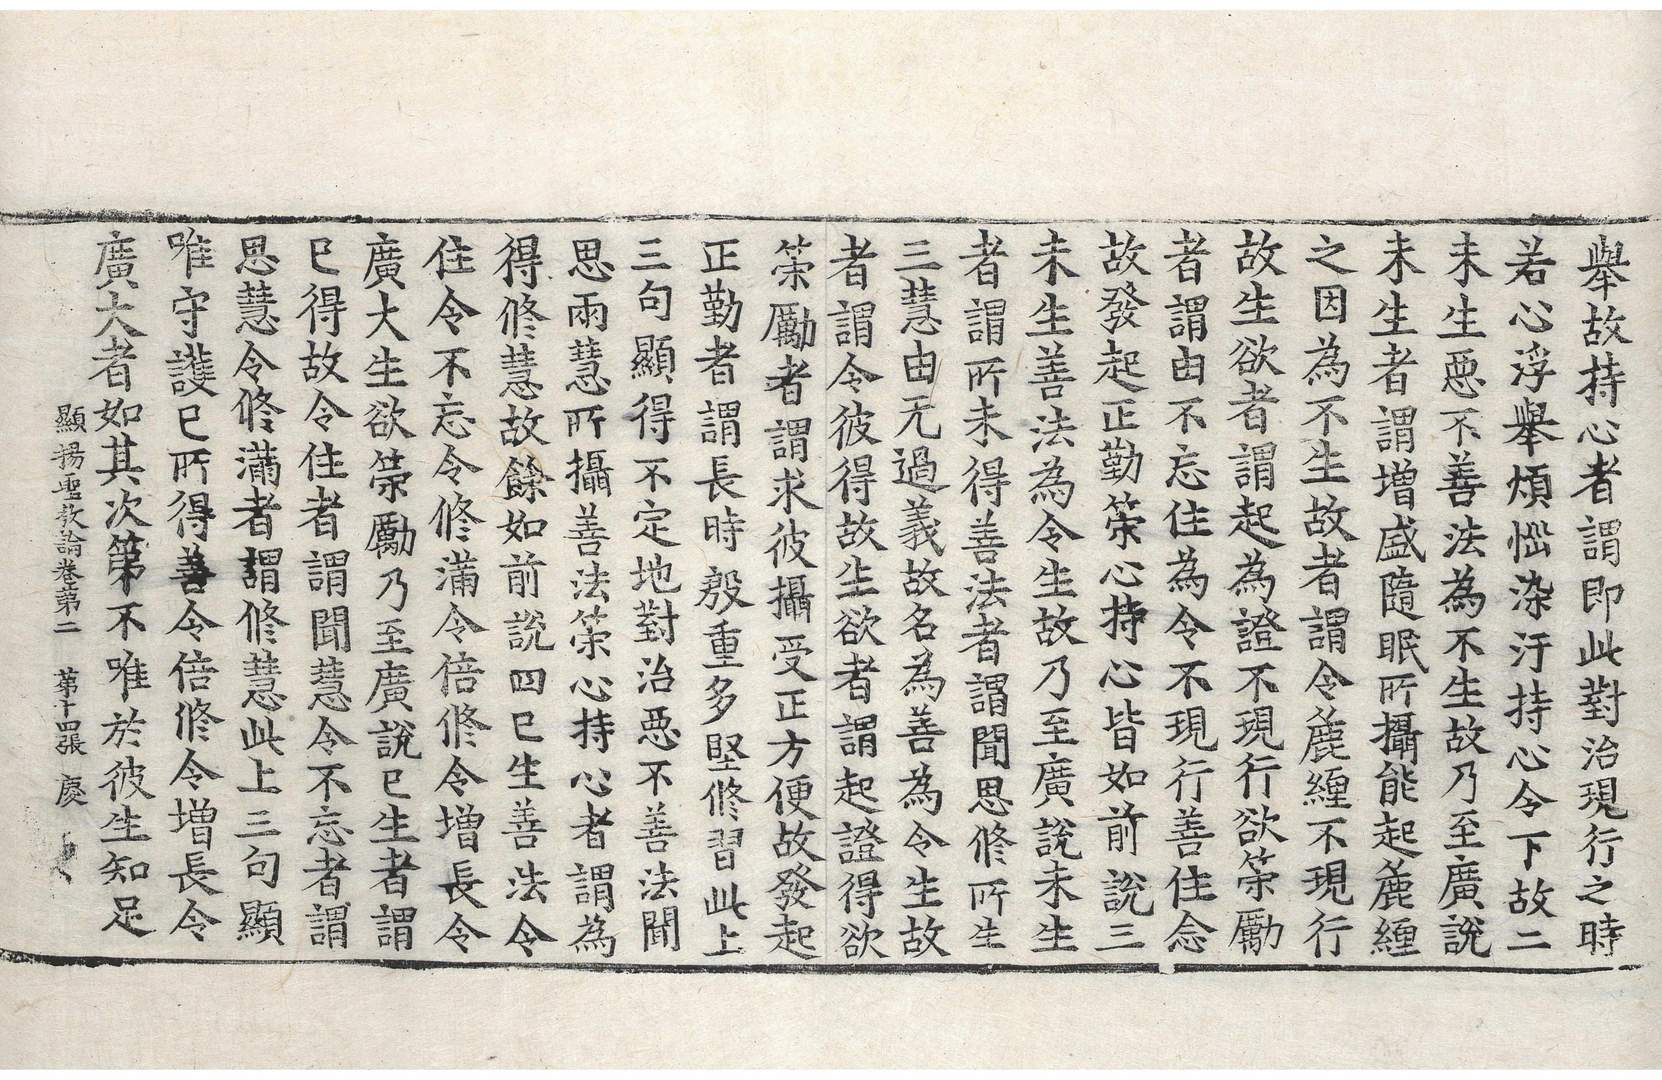 舉故持心者謂即此對治現行之時
若心浮舉煩惱染汙持心令下故二
未生惡不善法為不生故乃至廣說
未生者謂增盛隨眠所攝能起麁纏
之因為不生故者謂令麁纏不現行
故生欲者謂起為證不現行欲策勵
者謂由不忘住為令不現行善住念
故發起正勤策心持心皆如前說三
未生善法為令生故乃至廣說未生
者謂所未得善法者謂聞思修所生
三慧由无過義故名為善為令生故
者謂令彼得故生欲者謂起證得欲
策勵者謂求彼攝受正方便故發起
正勤者謂長時殷重多堅修習此上
三句顯得不定地對治惡不善法聞
思兩慧所攝善法策心持心者謂為
得修慧故餘如前說四已生善法令
住令不忘令修滿令倍修令增長令
廣大生欲策勵乃至廣說已生者謂
已得故令住者謂聞慧令不忘者謂
思慧令修滿者謂修慧此上三句顯
唯守護已所得善令倍修令增長令
廣大者如其次第不唯於彼生知足
顯揚聖教論卷第二 第十四張 慶